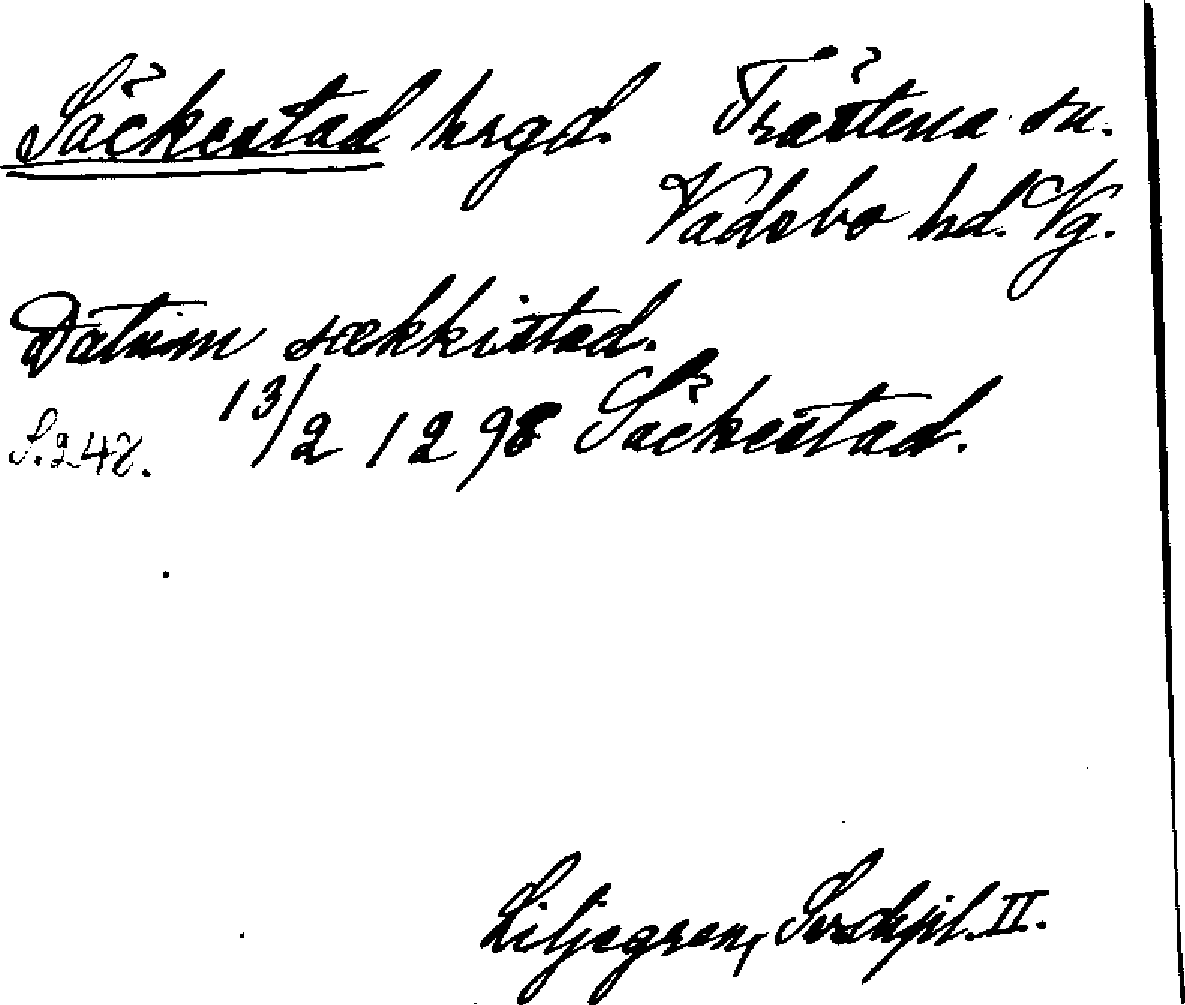 Säckestad hrgd. Trästena sn.
Vadsbo hd. Vg.
Datum sækkistad.
S. 248. 13/2 1298 Säckestad.
Liljegren, Svdipl. II.